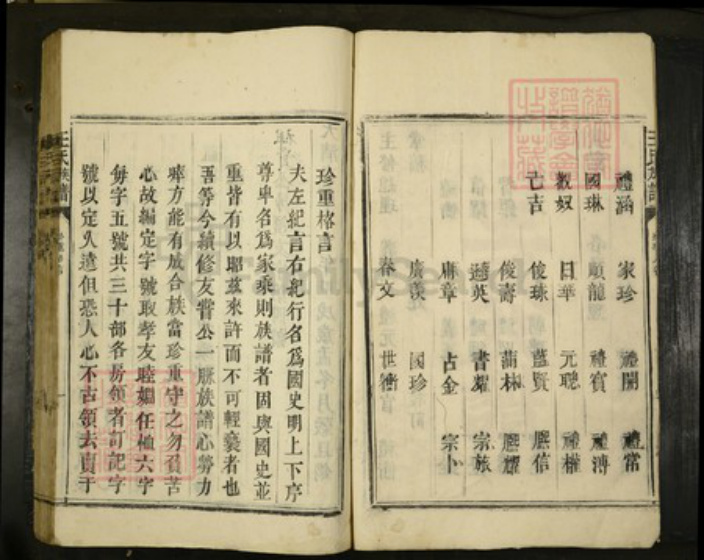 禮涵 家珍 禮開 禮常
國琳 顯龍 禮賓 禮溥
觀奴 日華 元聰 禮權
亡吉 俊珠 藍賢 勝信
俊壽 蒲林 勝耀
達英 書耀 宗旅
麻章 占金 宗上
廣漢 國珍
春文 世衡
珍重格言
夫左紀言右紀行名為國史明上下序
尊卑名為家乘則族譜者固與國史並
重皆有以昭茲來許而不可輕褻者也
吾等今續修友嘗公一脈族譜心勞力
瘁方能有成合族當珍重守之勿負苦
心故編定字號取孝友睦婣任恤六字
每字五號共三十部各房領者訂記字
號以定久遠但恐人心不古領去賣于
王氏族譜